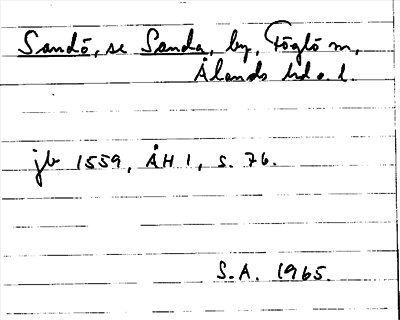 Sandö, se Sanda, by, Föglö m,
Ålands hd o. l.
jb 1559, ÅH 1, s. 76.
S.A. 1965.